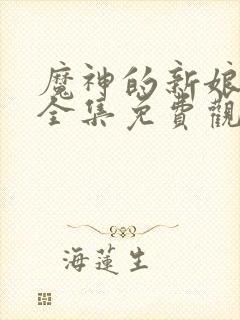 魔神的新娘
全集免費觀
海蓮生